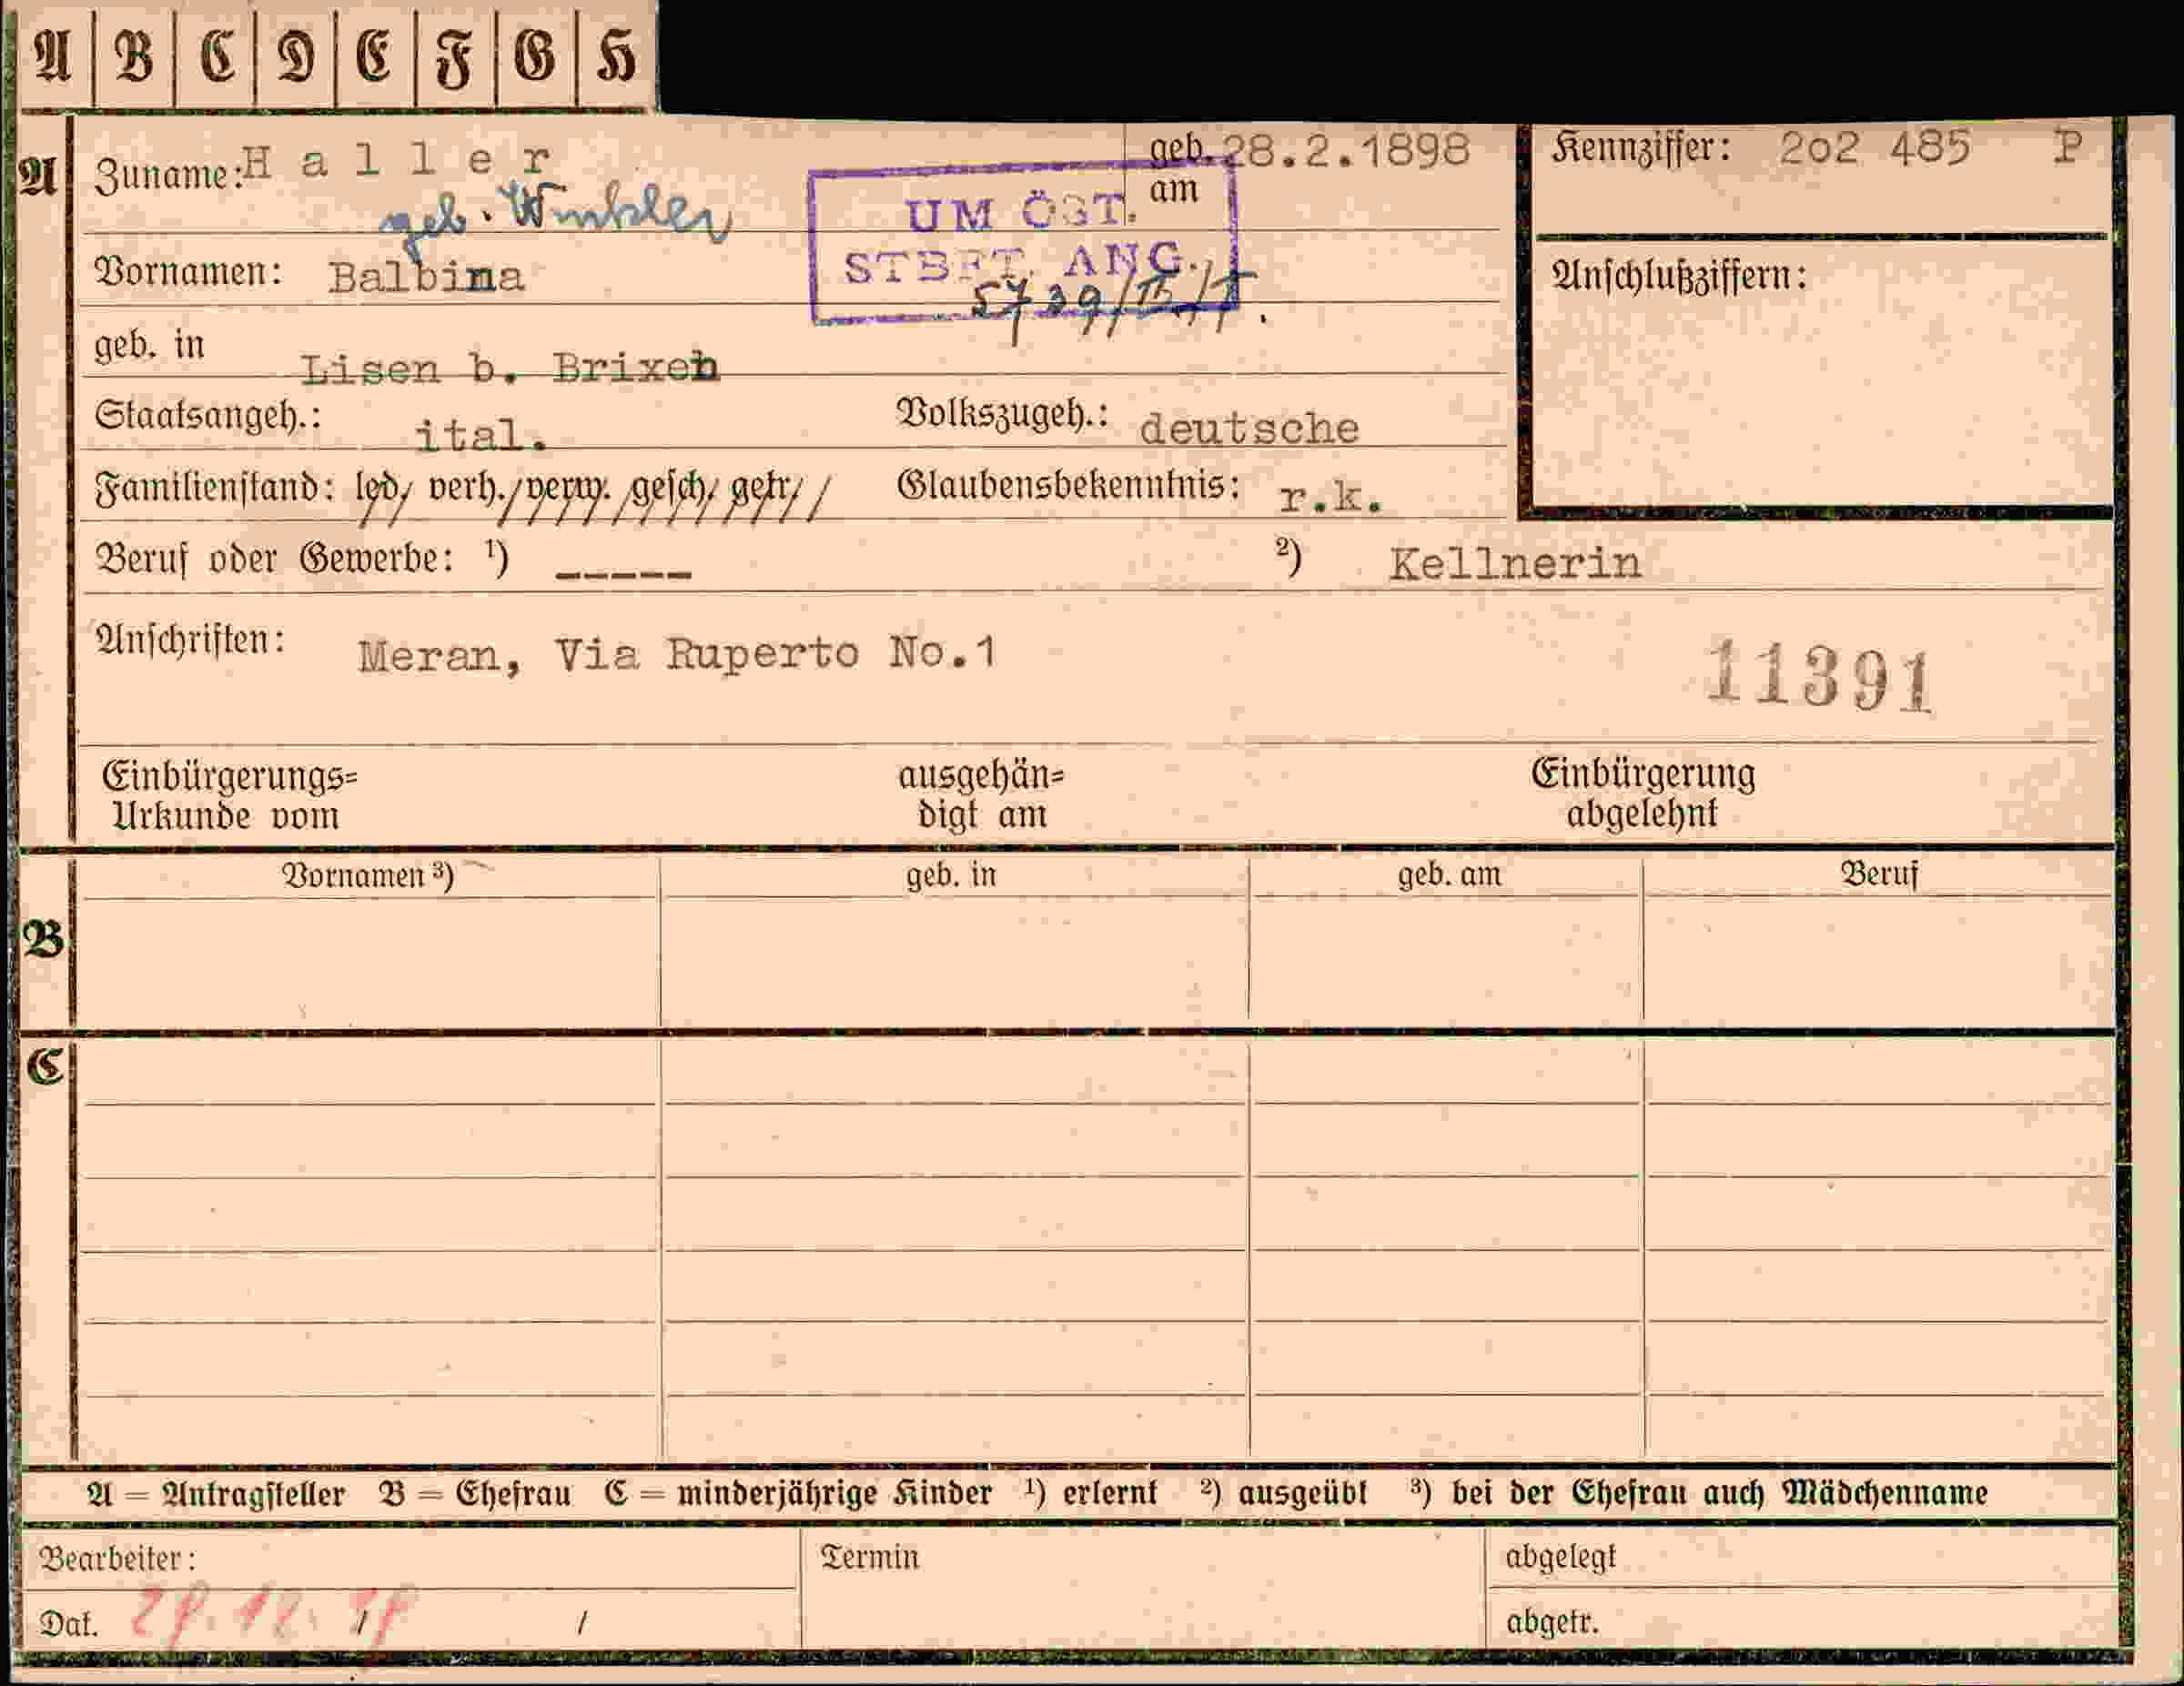 A B C D E F G H
A Zuname: Haller geb. am 28.2.1898 Kennziffer: 2o2 485 P
geb. Winkler
UM ÖST.
STBFT. ANG.
Vornamen: Balbina Anschlußziffern:
geb. in Lisen b. Brixen
Staatsangeh.: ital. Volkszugeh.: deutsche
Familienstand: led/ verh./verw. /gesch/ getr/ / Glaubensbekenntnis: r.k.
Beruf oder Gewerbe: ¹) ----- ²) Kellnerin
Anschriften: Meran, Via Ruperto No.1
11391
Einbürgerungs= ausgehän= Einbürgerung
Urkunde vom digt am abgelehnt
Vornamen ³) geb. in geb. am Beruf
B
C
A = Antragsteller B = Ehefrau C = minderjährige Kinder ¹) erlernt ²) ausgeübt ³) bei der Ehefrau auch Mädchenname
Bearbeiter: Termin abgelegt
Dat. / / abgetr.